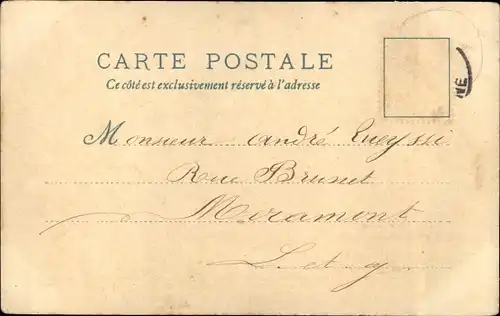 CARTE POSTALE
Ce côté est exclusivement réservé à l'adresse
NE
Monsieur André Queyssi
Rue Brunet
Miramont
L. et g